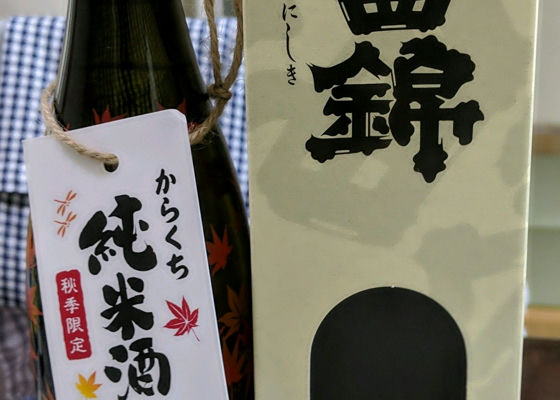 からくち
純米酒
秋季限定
錦
にしき